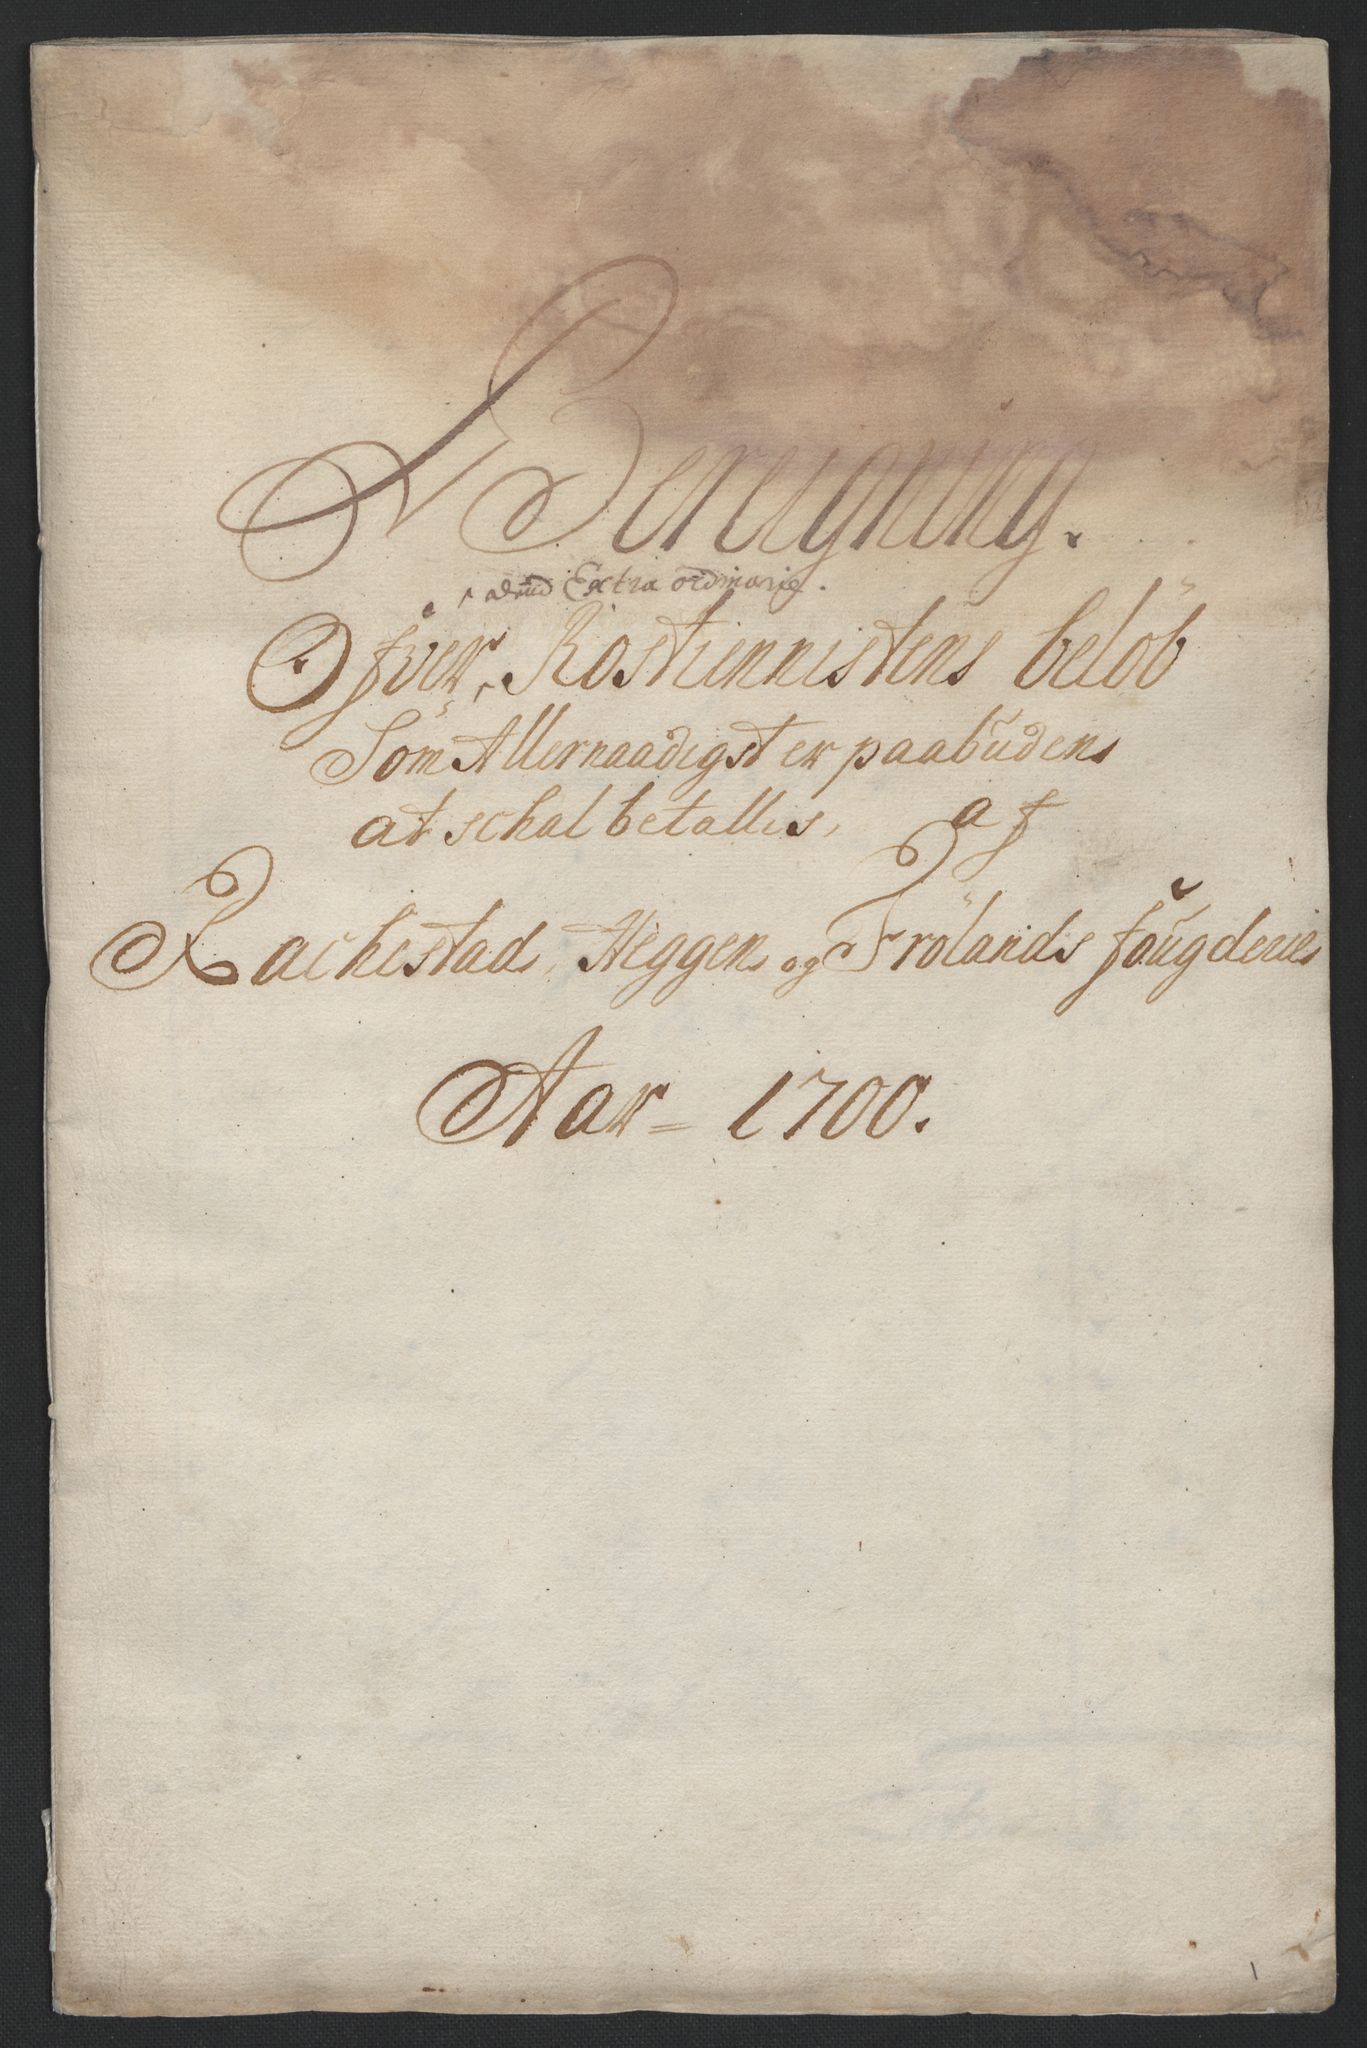 Bereigning.
Extra ordinarie.
Ofver Rostiennistens beløb
Som Allernaadigst er paabuden
at schal betallis, af
Rachestad, Heggen og Frølands fougderie
Aar = 1700.
1